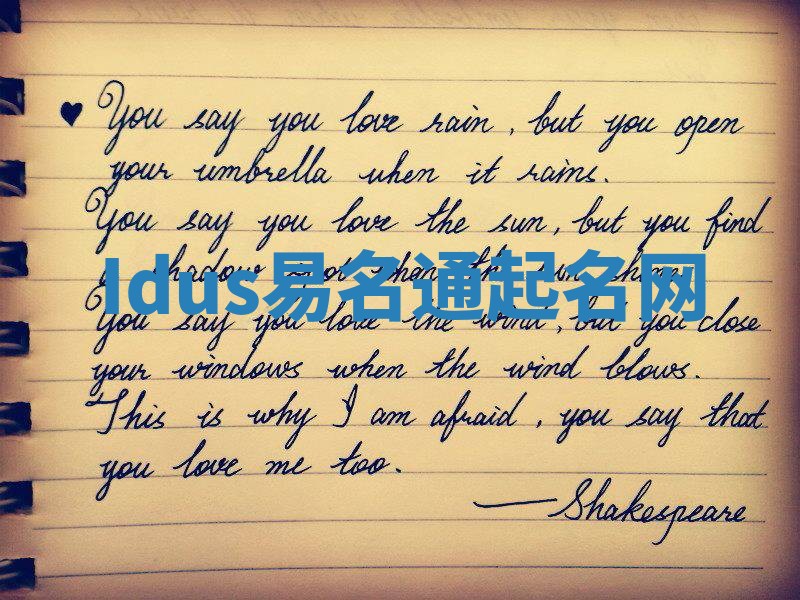 ♥ You say you love rain, but you open
your umbrella when it rains.
You say you love the sun, but you find
a shadow spot when the sun shines.
Idus易名通起名网
You say you love the wind, but you close
your windows when the wind blows.
This is why I am afraid, you say that
you love me too.
—Shakespeare